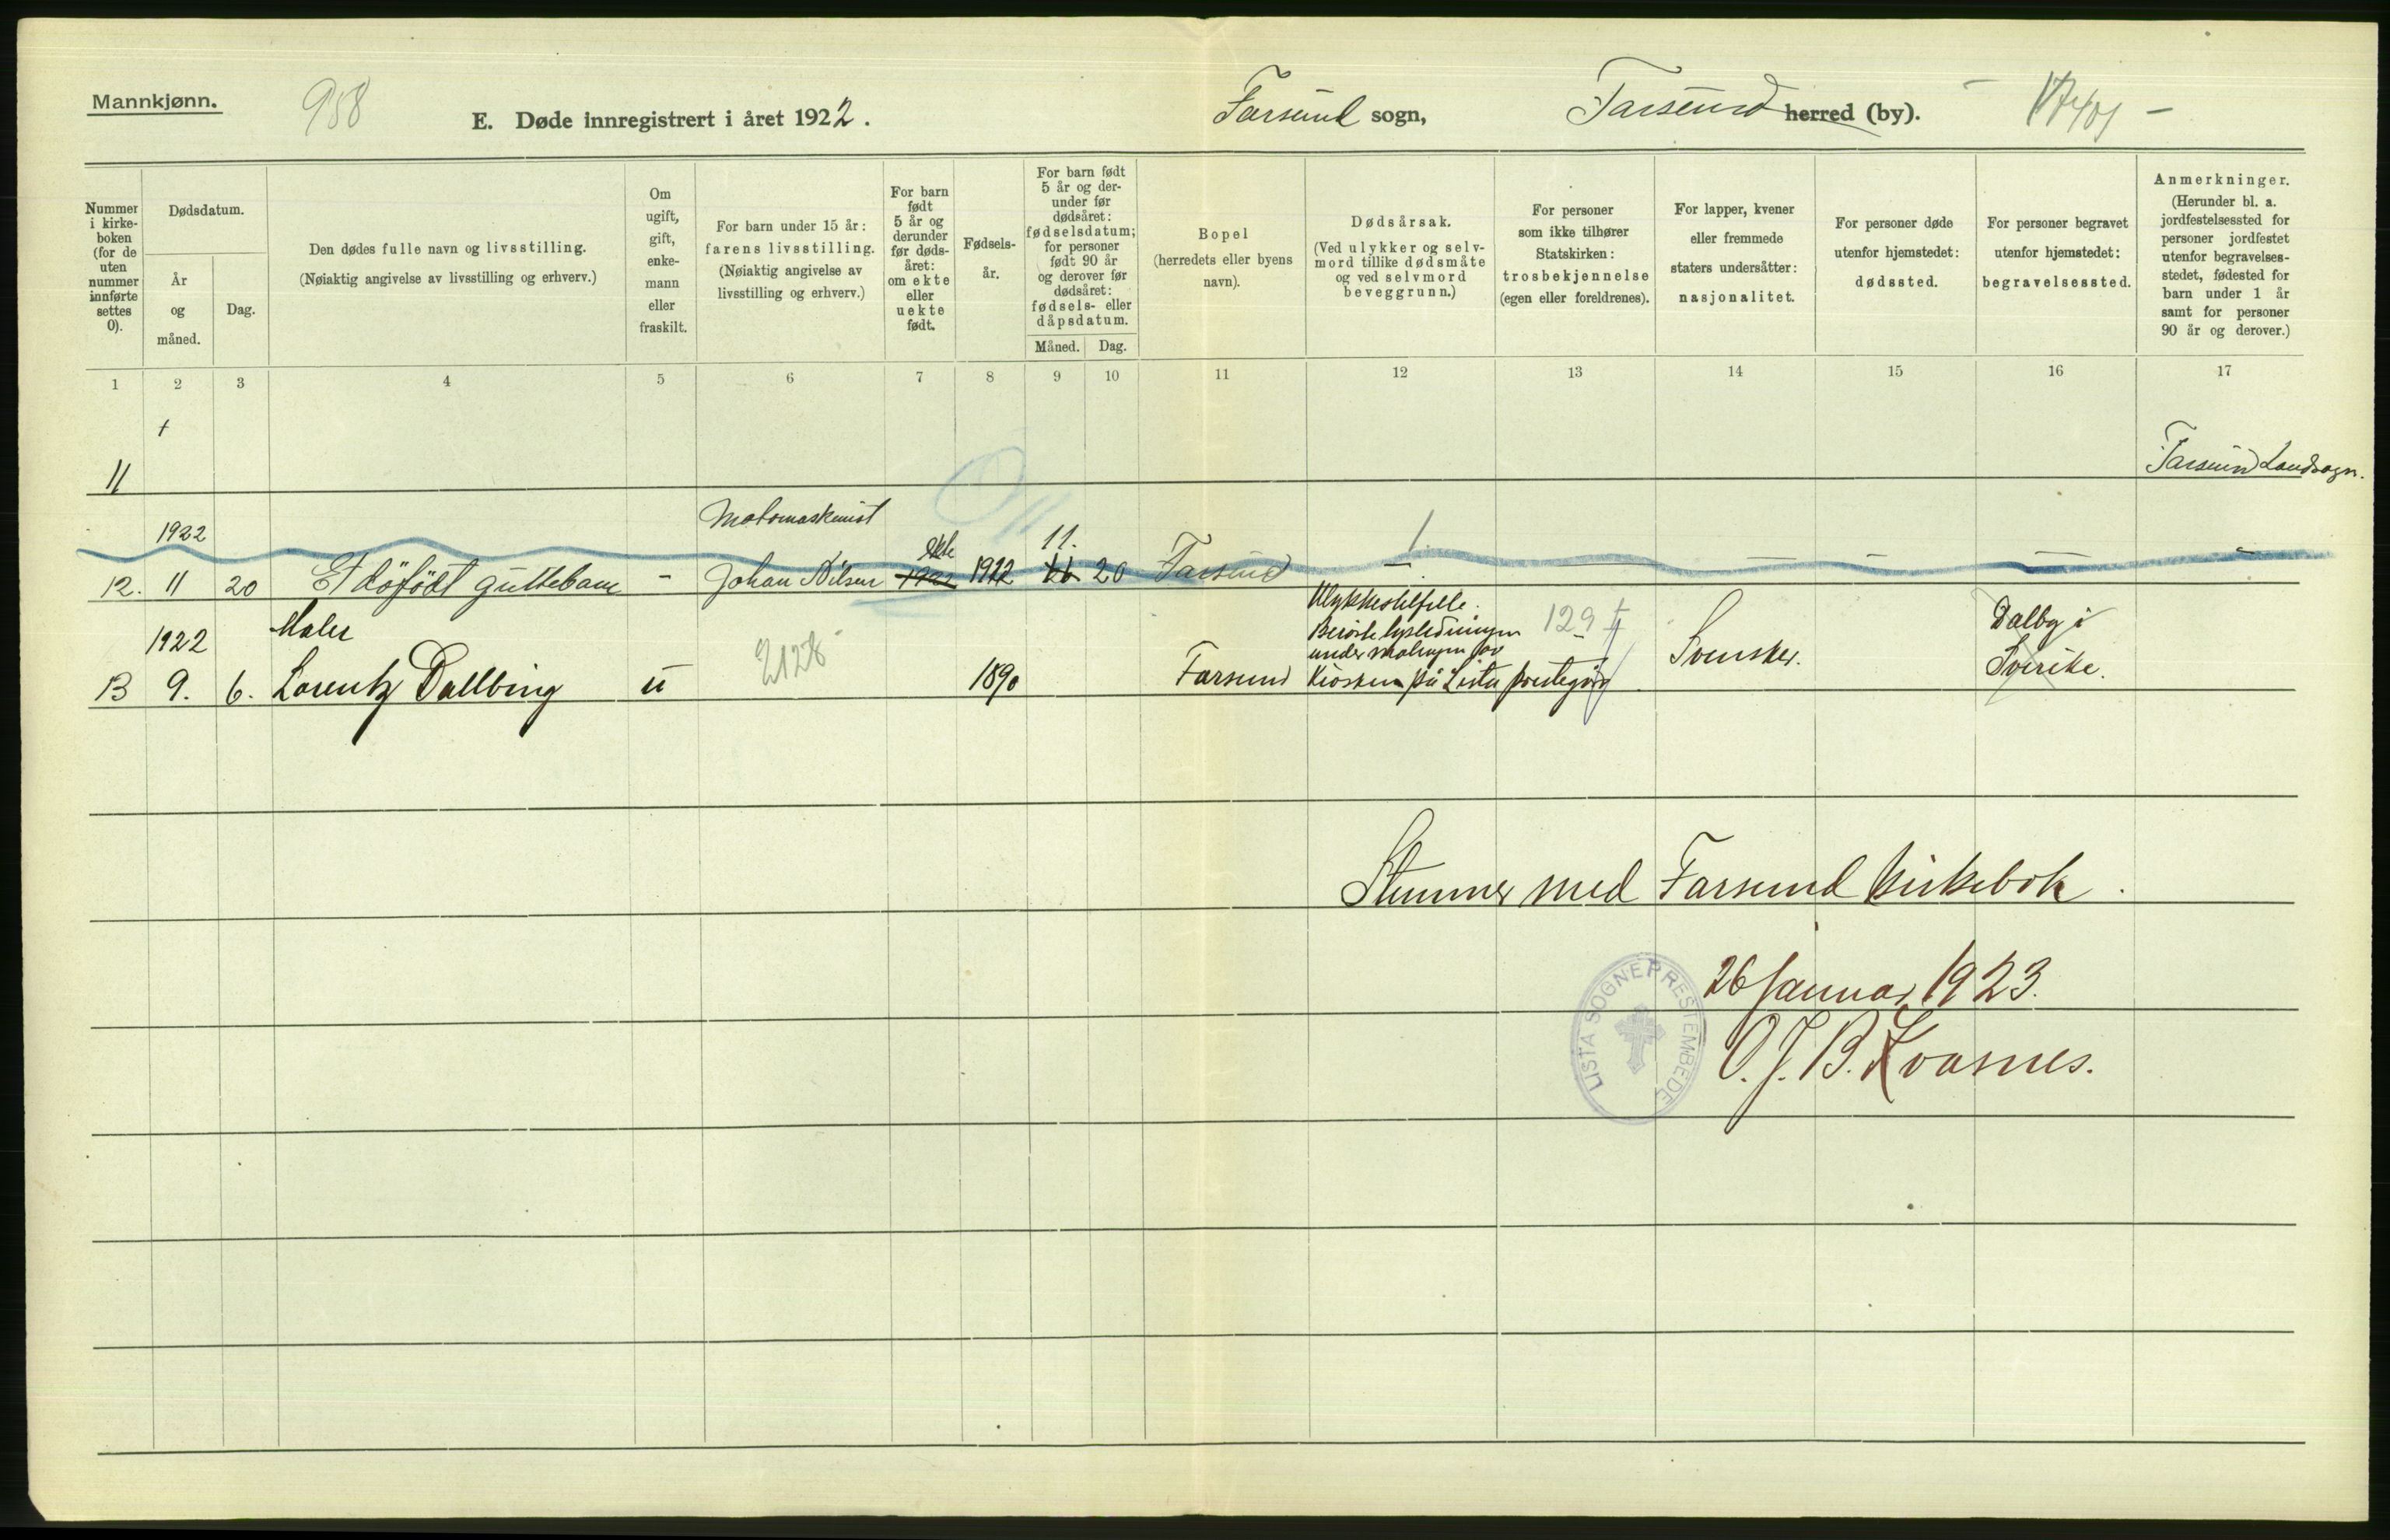 Mannkjønn.
958
E. Døde innregistrert i året 1922.
Farsund sogn,
Farsund herred (by).
Nummer i kirke-boken (for de uten nummer innførte settes 0).
Dødsdatum.
År og måned.
Dag.
Den dødes fulle navn og livsstilling.
(Nøiaktig angivelse av livsstilling og erhverv.)
Om ugift, gift, enke-mann eller fraskilt.
For barn under 15 år: farens livsstilling.
(Nøiaktig angivelse av livsstilling og erhverv.)
For barn født 5 år og derunder før døds-året: om ekte eller uekte født.
Fødsels-år.
For barn født 5 år og der-under før dødsåret: fødselsdatum; for personer født 90 år og derover før dødsåret: fødsels- eller dåpsdatum.
Måned. Dag.
Bopel
(herredets eller byens navn).
Dødsårsak.
(Ved ulykker og selv-mord tillike dødsmåte og ved selvmord beveggrunn.)
For personer som ikke tilhører Statskirken: trosbekjennelse (egen eller foreldrenes).
For lapper, kvener eller fremmede staters undersåtter: nasjonalitet.
For personer døde utenfor hjemstedet: dødssted.
For personer begravet utenfor hjemstedet: begravelsessted.
Anmerkninger.
(Herunder bl. a. jordfestelsessted for personer jordfestet utenfor begravelses-stedet, fødested for barn under 1 år samt for personer 90 år og derover.)
1 2 3 4 5 6 7 8 9 10 11 12 13 14 15 16 17
11 Farsund Landsogn.
1922 Motormaskinist ekte 11. 1.
12. 11 20 Et döfödt guttebarn - Johan Nilsen 1922 1922 11 20 Farsund - - - - -
Ulykkestilfelle.
1922 Maler 2128 Berörte lysledningen 129 Dalby i
under malingen av
13 9. 6. Lorentz Dallbing u 1890 Farsund Kiosken på Lista prestegård Svensker. Sverike.
Stemmer med Farsund kirkebok.
26 Januar 1923.
LISTA SOGNEPRESTEMBEDE
O. J. B. Kvasnes.